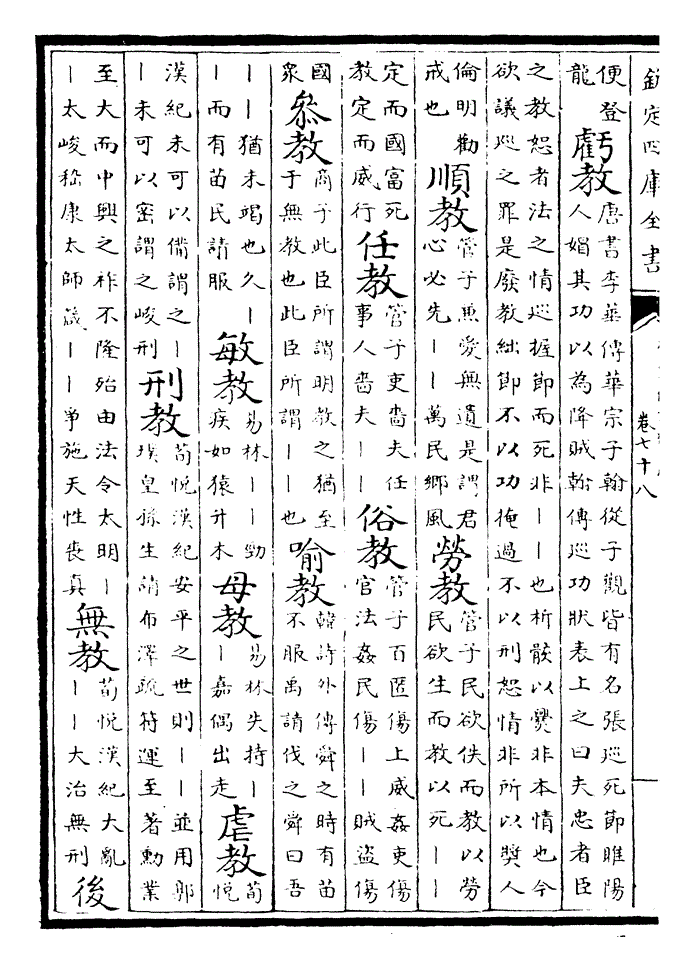 欽定四庫全書
卷七十八
便登
龍
虧教
唐書李華傳華宗子翰從子觀皆有名張巡死節睢陽
人媢其功以為降賊翰傳巡功狀表上之曰夫忠者臣
之教恕者法之情巡握節而死非｜｜也析骸以爨非本情也今
欲議巡之罪是廢教絀節不以功掩過不以刑恕情非所以奬人
倫明勸
戒也
順教
管子兼愛無遺是謂君
心必先｜｜萬民鄉風
勞教
管子民欲佚而教以勞
民欲生而教以死｜｜
定而國富死
教定而威行
任教
管子吏嗇夫任
事人嗇夫｜｜
俗教
管子百匿傷上威姦吏傷
官法姦民傷｜｜賊盜傷
國
衆
叅教
商子此臣所謂明教之猶至
于無教也此臣所謂｜｜也
喻教
韓詩外傳舜之時有苗
不服禹請伐之舜曰吾
｜｜猶未竭也久｜
｜而有苗民請服
敏教
易林｜｜勁
疾如猿升木
母教
易林失恃｜
｜嘉偶出走
虐教
荀
悅
漢紀未可以備謂之｜
｜未可以密謂之峻刑
刑教
荀悅漢紀安平之世則｜｜並用郭
璞皇孫生請布澤疏符運至著勳業
至大而中興之祚不隆殆由法令太明｜
｜太峻嵇康太師箴｜｜爭施天性喪真
無教
荀悅漢紀大亂
｜｜大治無刑
後